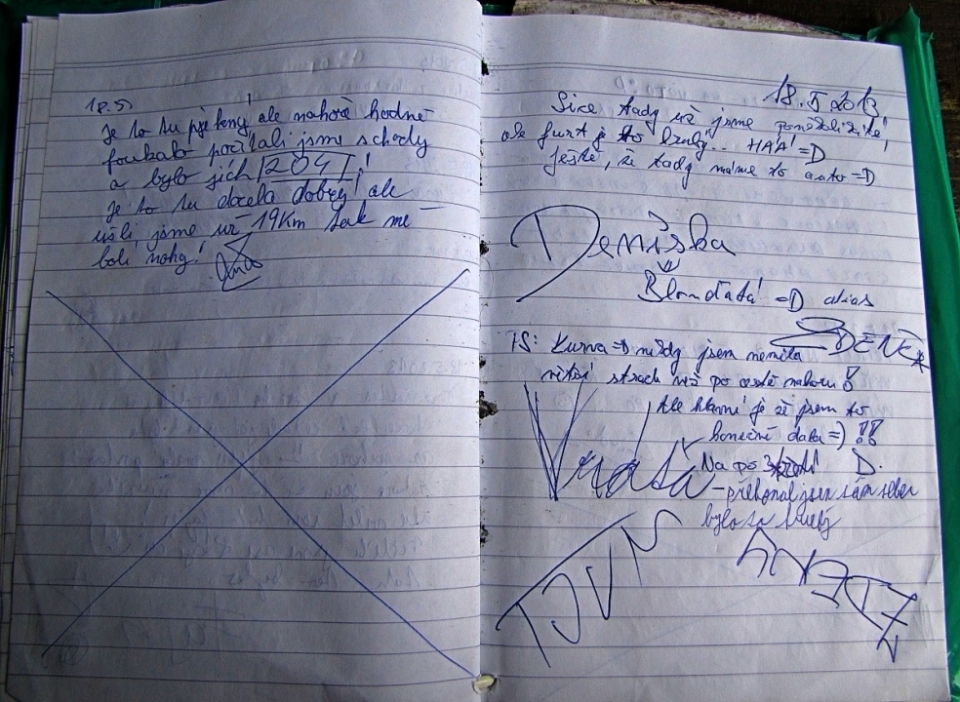 18.5
Je to tu pěkený ale nahoře hodně
foukalo počítali jsme schody
a bylo jich 2041!
je to tu docela dobrý! ale
ušli jsme už 19Km tak mě
bolí nohy!
18. 5 2013
Sice tady už jsme poněkolikáté,
ale furt je to krutý.. HAA! =D
Ještě, že tady máme to auto =D
Deniška
Blonďatá =D alias
ZDENČA
PS: Kurva =D nikdy jsem neměla
větší strach než po cestě nahoru!
Ale hlavní je že jsem to
konečně dala =) !!
Vráťa
Na po 3 D.
- překonal jsem sám sebe
bylo to krutý
ZDENY